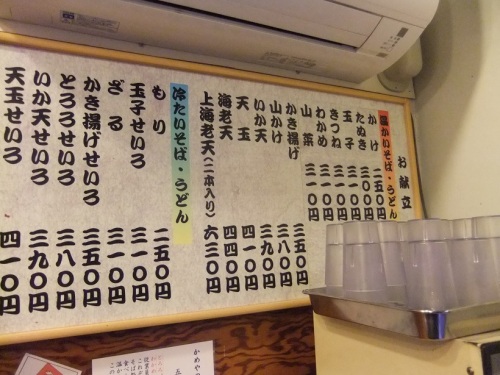 お献立
温かいそば・うどん
かけ 二五〇円
たぬき 三〇〇円
玉子 三一〇円
きつね 三一〇円
わかめ 三一〇円
山菜 三一〇円
かき揚げ 三五〇円
山かけ 三八〇円
いか天 三九〇円
天玉 四一〇円
海老天 四四〇円
上海老天(二本入り) 六三〇円
冷たいそば・うどん
もり 二五〇円
玉子せいろ 三一〇円
ざる 三一〇円
かき揚げせいろ 三五〇円
とろろせいろ 三八〇円
いか天せいろ 三九〇円
天玉せいろ 四一〇円
かめやの